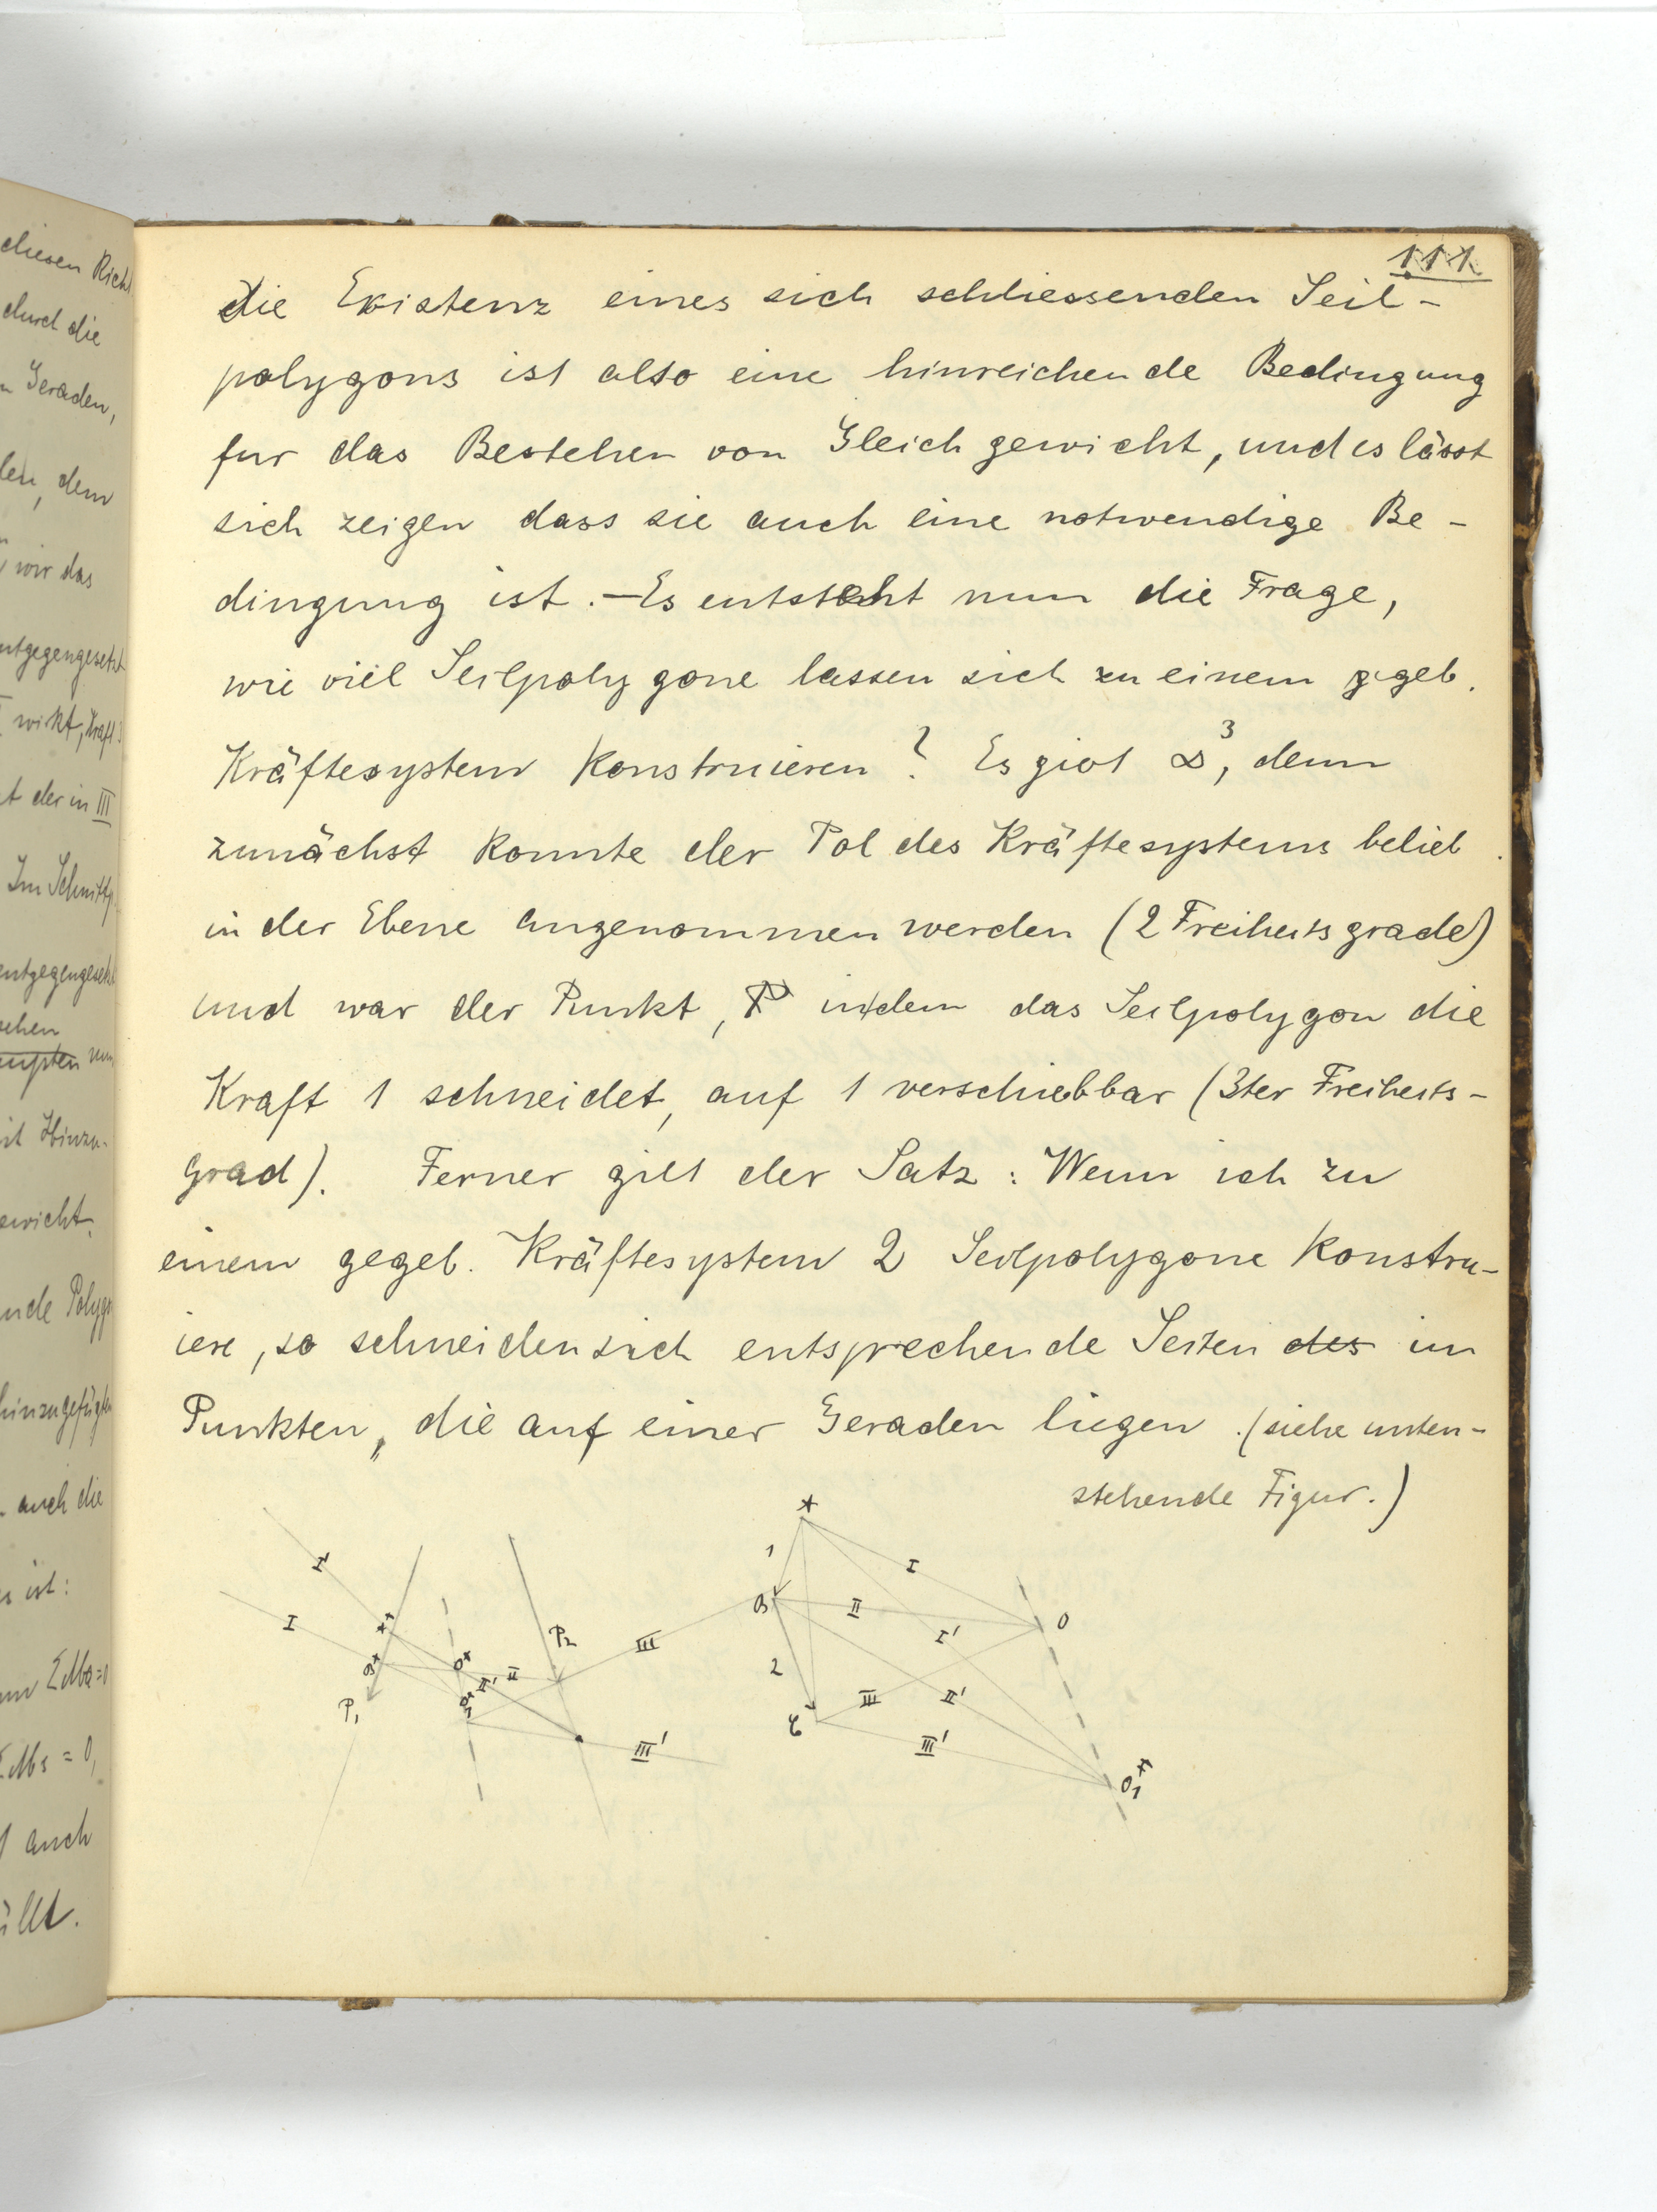 111
die Existenz eines sich schliessenden Seil-
polygons ist also eine hinreichende Bedingung
fur das Bestehen von Gleichgewicht, und es lässt
sich zeigen dass sie auch eine notwendige Be-
dingung ist. – Es entsteht nun die Frage,
wie viel Seilpolygone lassen sich zu einem geb.
Kräftesystem konstruieren? Es giebt ∞³, denn
zunächst konnte der Pol des Kräftesystems belieb.
in der Ebene angenommen werden (2 Freiheitsgrade)
und war der Punkt, in dem das Seilpolygon die
Kraft 1 schneidet, auf 1 verschiebbar (3ter Freiheits-
grad). Ferner gilt der Satz: Wenn ich zu
einem gegeb. Kräftesystem 2 Seilpolygone konstru-
iere, so schneiden sich entsprechende Seiten des in
Punkten, die auf einer Geraden liegen. (siehe unten-
stehende Figur.)
I'
I
P₁
P₂
II
II'
III
III'
1
2
I
II
I'
III
II'
III'
O
O₁*
diesen Rich
durch die
Geraden,
dem
wir das
entgegengesetzt
wirkt, Kraft
der in III
Im Schnittp
entgegengesetzt
Hinzu-
Polyg
hinzugefügt
auch die
ist:
= 0,
auch